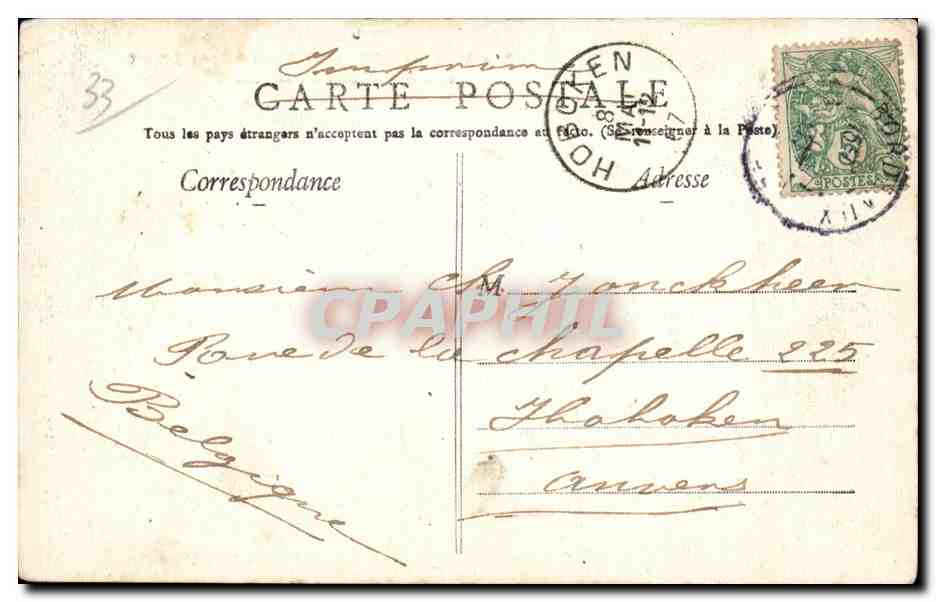 33
Imprimé
CARTE POSTALE
Tous les pays étrangers n'acceptent pas la correspondance au recto. (Se renseigner à la Poste).
HOBOKEN
8
MAI
11-12
07
BORDEAUX
POSTES
Correspondance
Adresse
M.
Monsieur Ch. Jonckheen
Rue de la chapelle 225
Hohoken
Anvers
Belgique
CPAPHIL